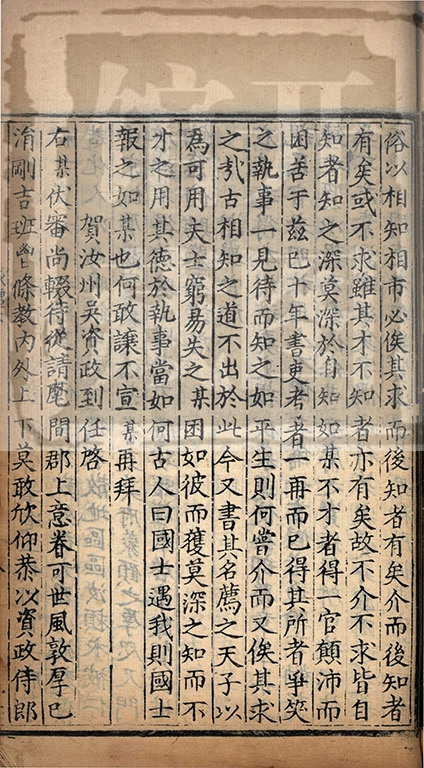 俗以相知相市必俟其求而後知者有矣介而後知者
有矣或不求雖其才不知者亦有矣故不介不求皆自
知者知之深莫深於自知如某不才者得一官顛沛而
困苦于兹巳十年書吏考者一再而巳得其所者爭笑
之執事一見待而知之如平生則何嘗介而又俟其求
之㦲古相知之道不出於此今又書其名薦之天子以
爲可用夫士窮易失之某困如彼而獲莫深之知而不
才之用其德於執事當如何古人曰國士遇我則國士
報之如某也何敢讓不宣某再拜
賀汝州吳資政到任啓
右某伏審尚輟待從請麾間郡上意眷可世風敦厚巳
涓剛吉班條教内外上下莫敢欣仰恭以資政侍郎